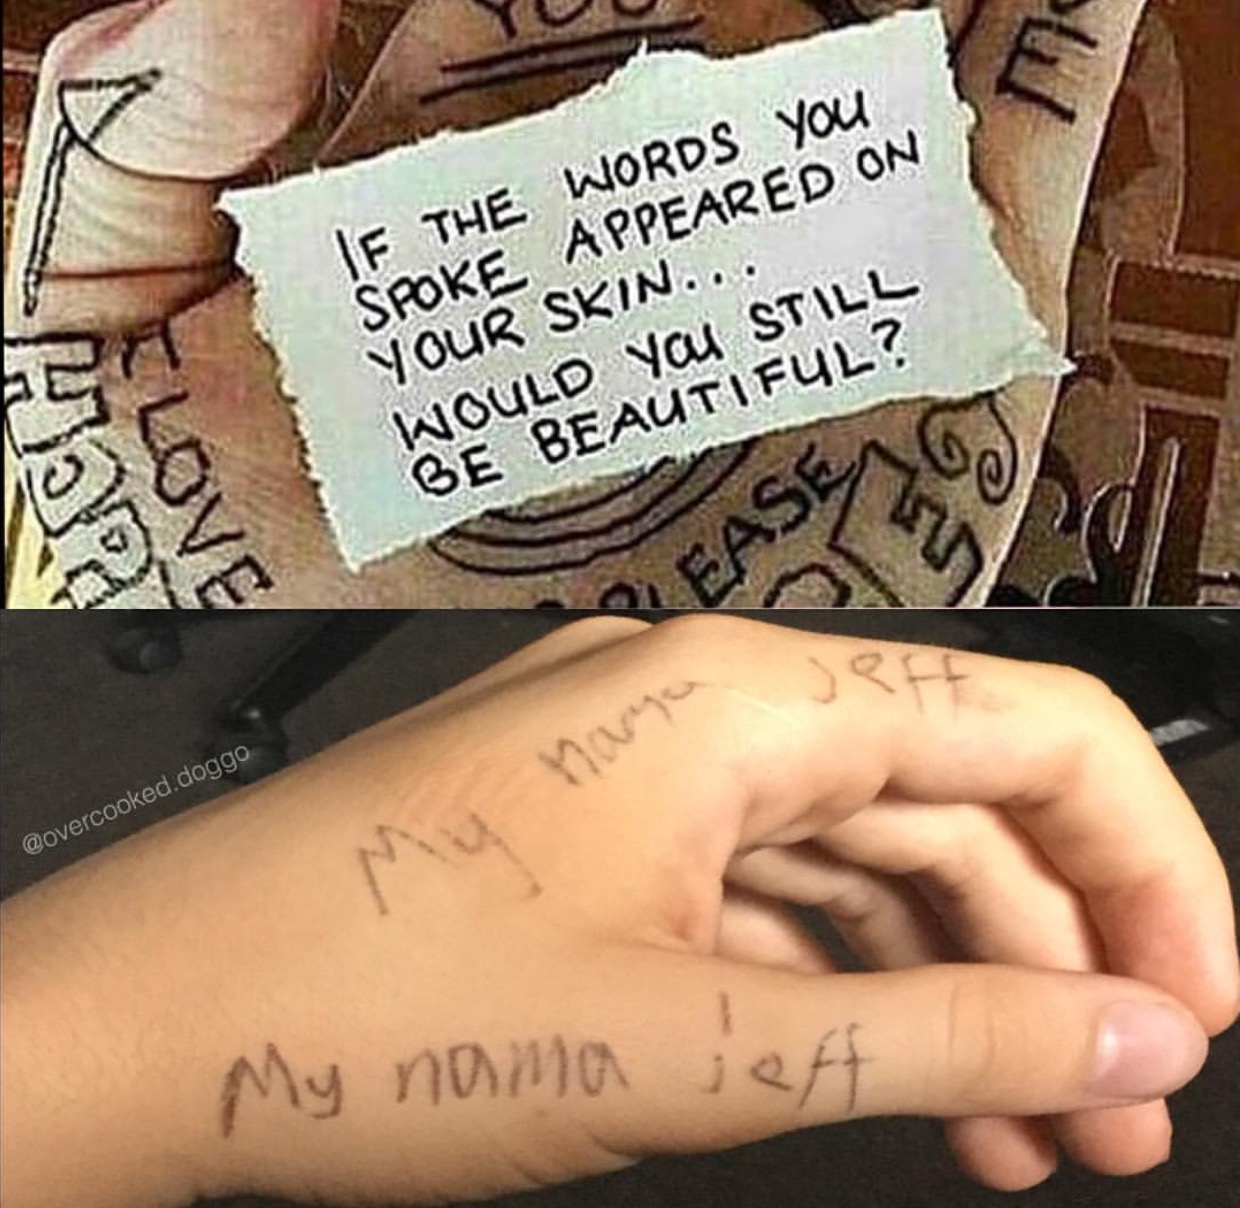 YOU
IF THE WORDS YOU
SPOKE APPEARED ON
YOUR SKIN...
WOULD YOU STILL
BE BEAUTIFUL?
LOVE
PLEASE
@overcooked.doggo
My nama jeff
My nama jeff